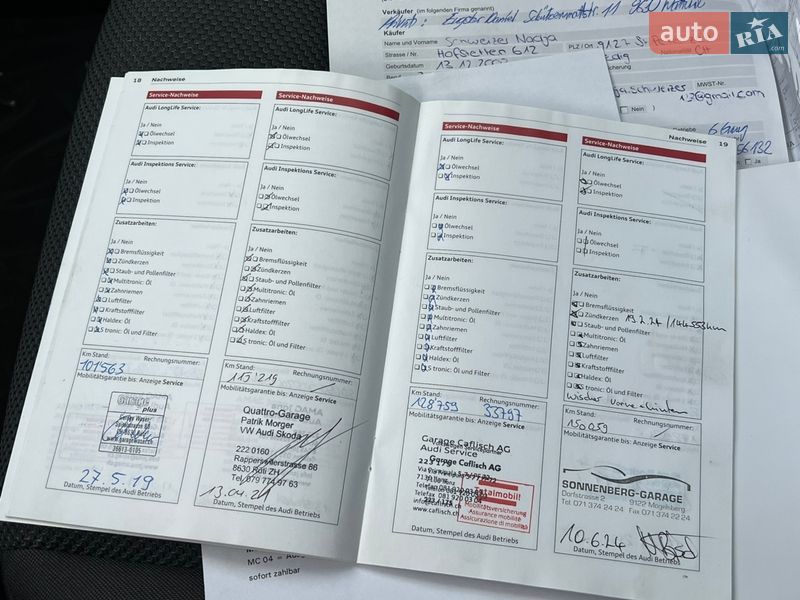 Verkäufer (im folgenden Firma genannt)
Käufer
Name und Vorname Schweizer Nadja
Strasse / Nr. Hofstetten 612 PLZ / Ort 9127 St.
Geburtsdatum
MWST-Nr.
@gmail.com
Nein )
6 Gang
Ja
auto RIA .com
18 Nachweise
Service-Nachweise
Audi LongLife Service:
Ja / Nein
Ölwechsel
Inspektion
Audi Inspektions Service:
Ja / Nein
Ölwechsel
Inspektion
Zusatzarbeiten:
Ja / Nein
Bremsflüssigkeit
Zündkerzen
Staub- und Pollenfilter
Multitronic: Öl
Zahnriemen
Luftfilter
Kraftstofffilter
Haldex: Öl
S tronic: Öl und Filter
Km Stand: Rechnungsnummer:
101563
Mobilitätsgarantie bis: Anzeige Service
garage plus
27.5.19
Datum, Stempel des Audi Betriebs
Service-Nachweise
Audi LongLife Service:
Ja / Nein
Ölwechsel
Inspektion
Audi Inspektions Service:
Ja / Nein
Ölwechsel
Inspektion
Zusatzarbeiten:
Ja / Nein
Bremsflüssigkeit
Zündkerzen
Staub- und Pollenfilter
Multitronic: Öl
Zahnriemen
Luftfilter
Kraftstofffilter
Haldex: Öl
S tronic: Öl und Filter
Km Stand: Rechnungsnummer:
115'219
Mobilitätsgarantie bis: Anzeige Service
Quattro-Garage
Patrik Morger
VW Audi Skoda
222 0160
Rapperswilerstrasse 86
8630 Rüti ZH
Tel. 079 774 97 63
13.04.21
Datum, Stempel des Audi Betriebs
Service-Nachweise
Audi LongLife Service:
Ja / Nein
Ölwechsel
Inspektion
Audi Inspektions Service:
Ja / Nein
Ölwechsel
Inspektion
Zusatzarbeiten:
Ja / Nein
Bremsflüssigkeit
Zündkerzen
Staub- und Pollenfilter
Multitronic: Öl
Zahnriemen
Luftfilter
Kraftstofffilter
Haldex: Öl
S tronic: Öl und Filter
Km Stand: Rechnungsnummer:
128'759 33797
Mobilitätsgarantie bis: Anzeige Service
Garage Caflisch AG
Audi Service
Garage Caflisch AG
Telefax 081 920 03 04
www.caflisch.ch
Totalmobil!
Mobilitätsversicherung
Assurance mobilité
Assicurazione di mobilità
Datum, Stempel des Audi Betriebs
Nachweise 19
Service-Nachweise
Audi LongLife Service:
Ja / Nein
Ölwechsel
Inspektion
Audi Inspektions Service:
Ja / Nein
Ölwechsel
Inspektion
Zusatzarbeiten:
Ja / Nein
Bremsflüssigkeit
Zündkerzen 19.2.24 / 144'553 km
Staub- und Pollenfilter
Multitronic: Öl
Zahnriemen
Luftfilter
Kraftstofffilter
Haldex: Öl
S tronic: Öl und Filter
Wischer vorne + hinten
Km Stand: Rechnungsnummer:
150059
Mobilitätsgarantie bis: Anzeige Service
SONNENBERG-GARAGE
Dorfstrasse 2 9122 Mogelsberg
Tel. 071 374 24 24 Fax 071 374 22 24
10.6.24
Datum, Stempel des Audi Betriebs
sofort zahlbar